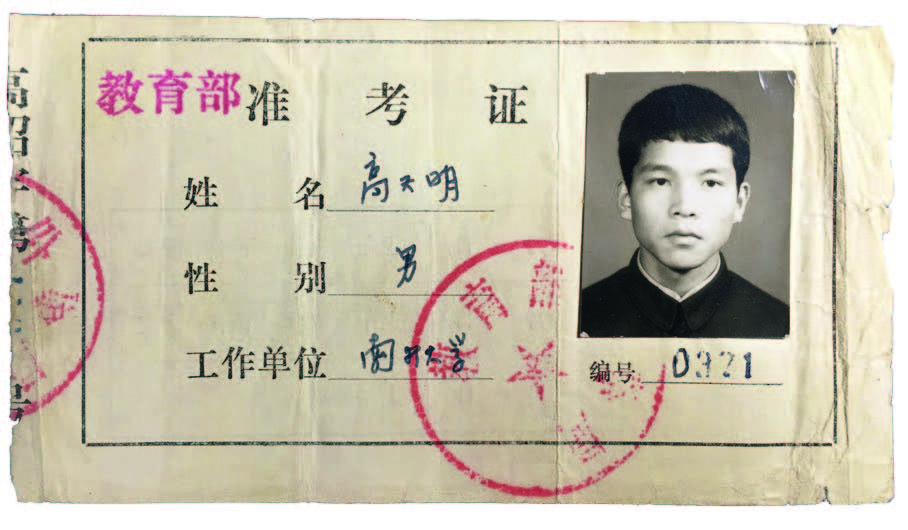 教育部 准考证
姓名 高天明
性别 男
工作单位 南开大学
编号 0321
教育部